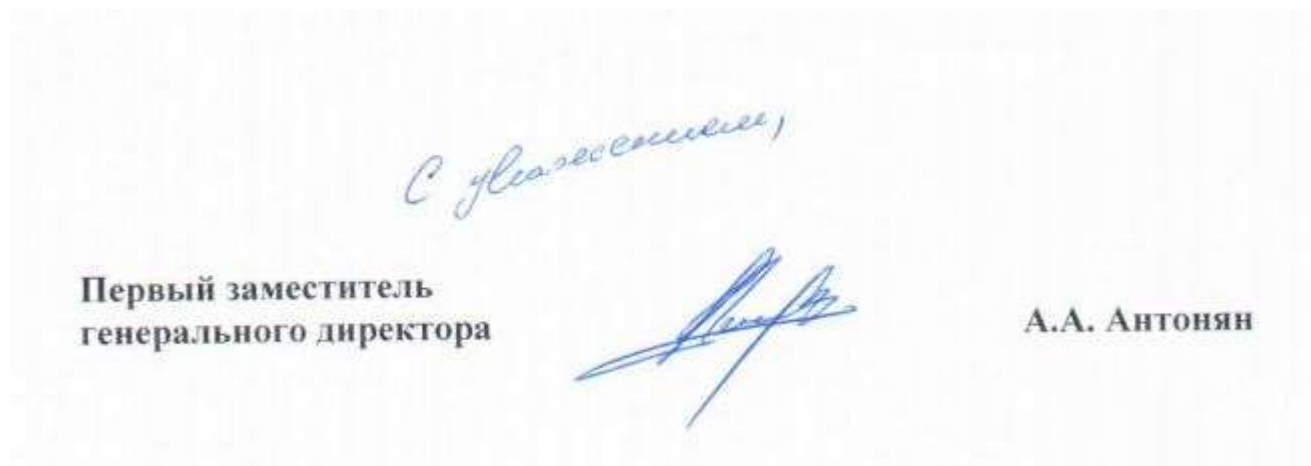 С уважением,
Первый заместитель
генерального директора
А.А. Антонян